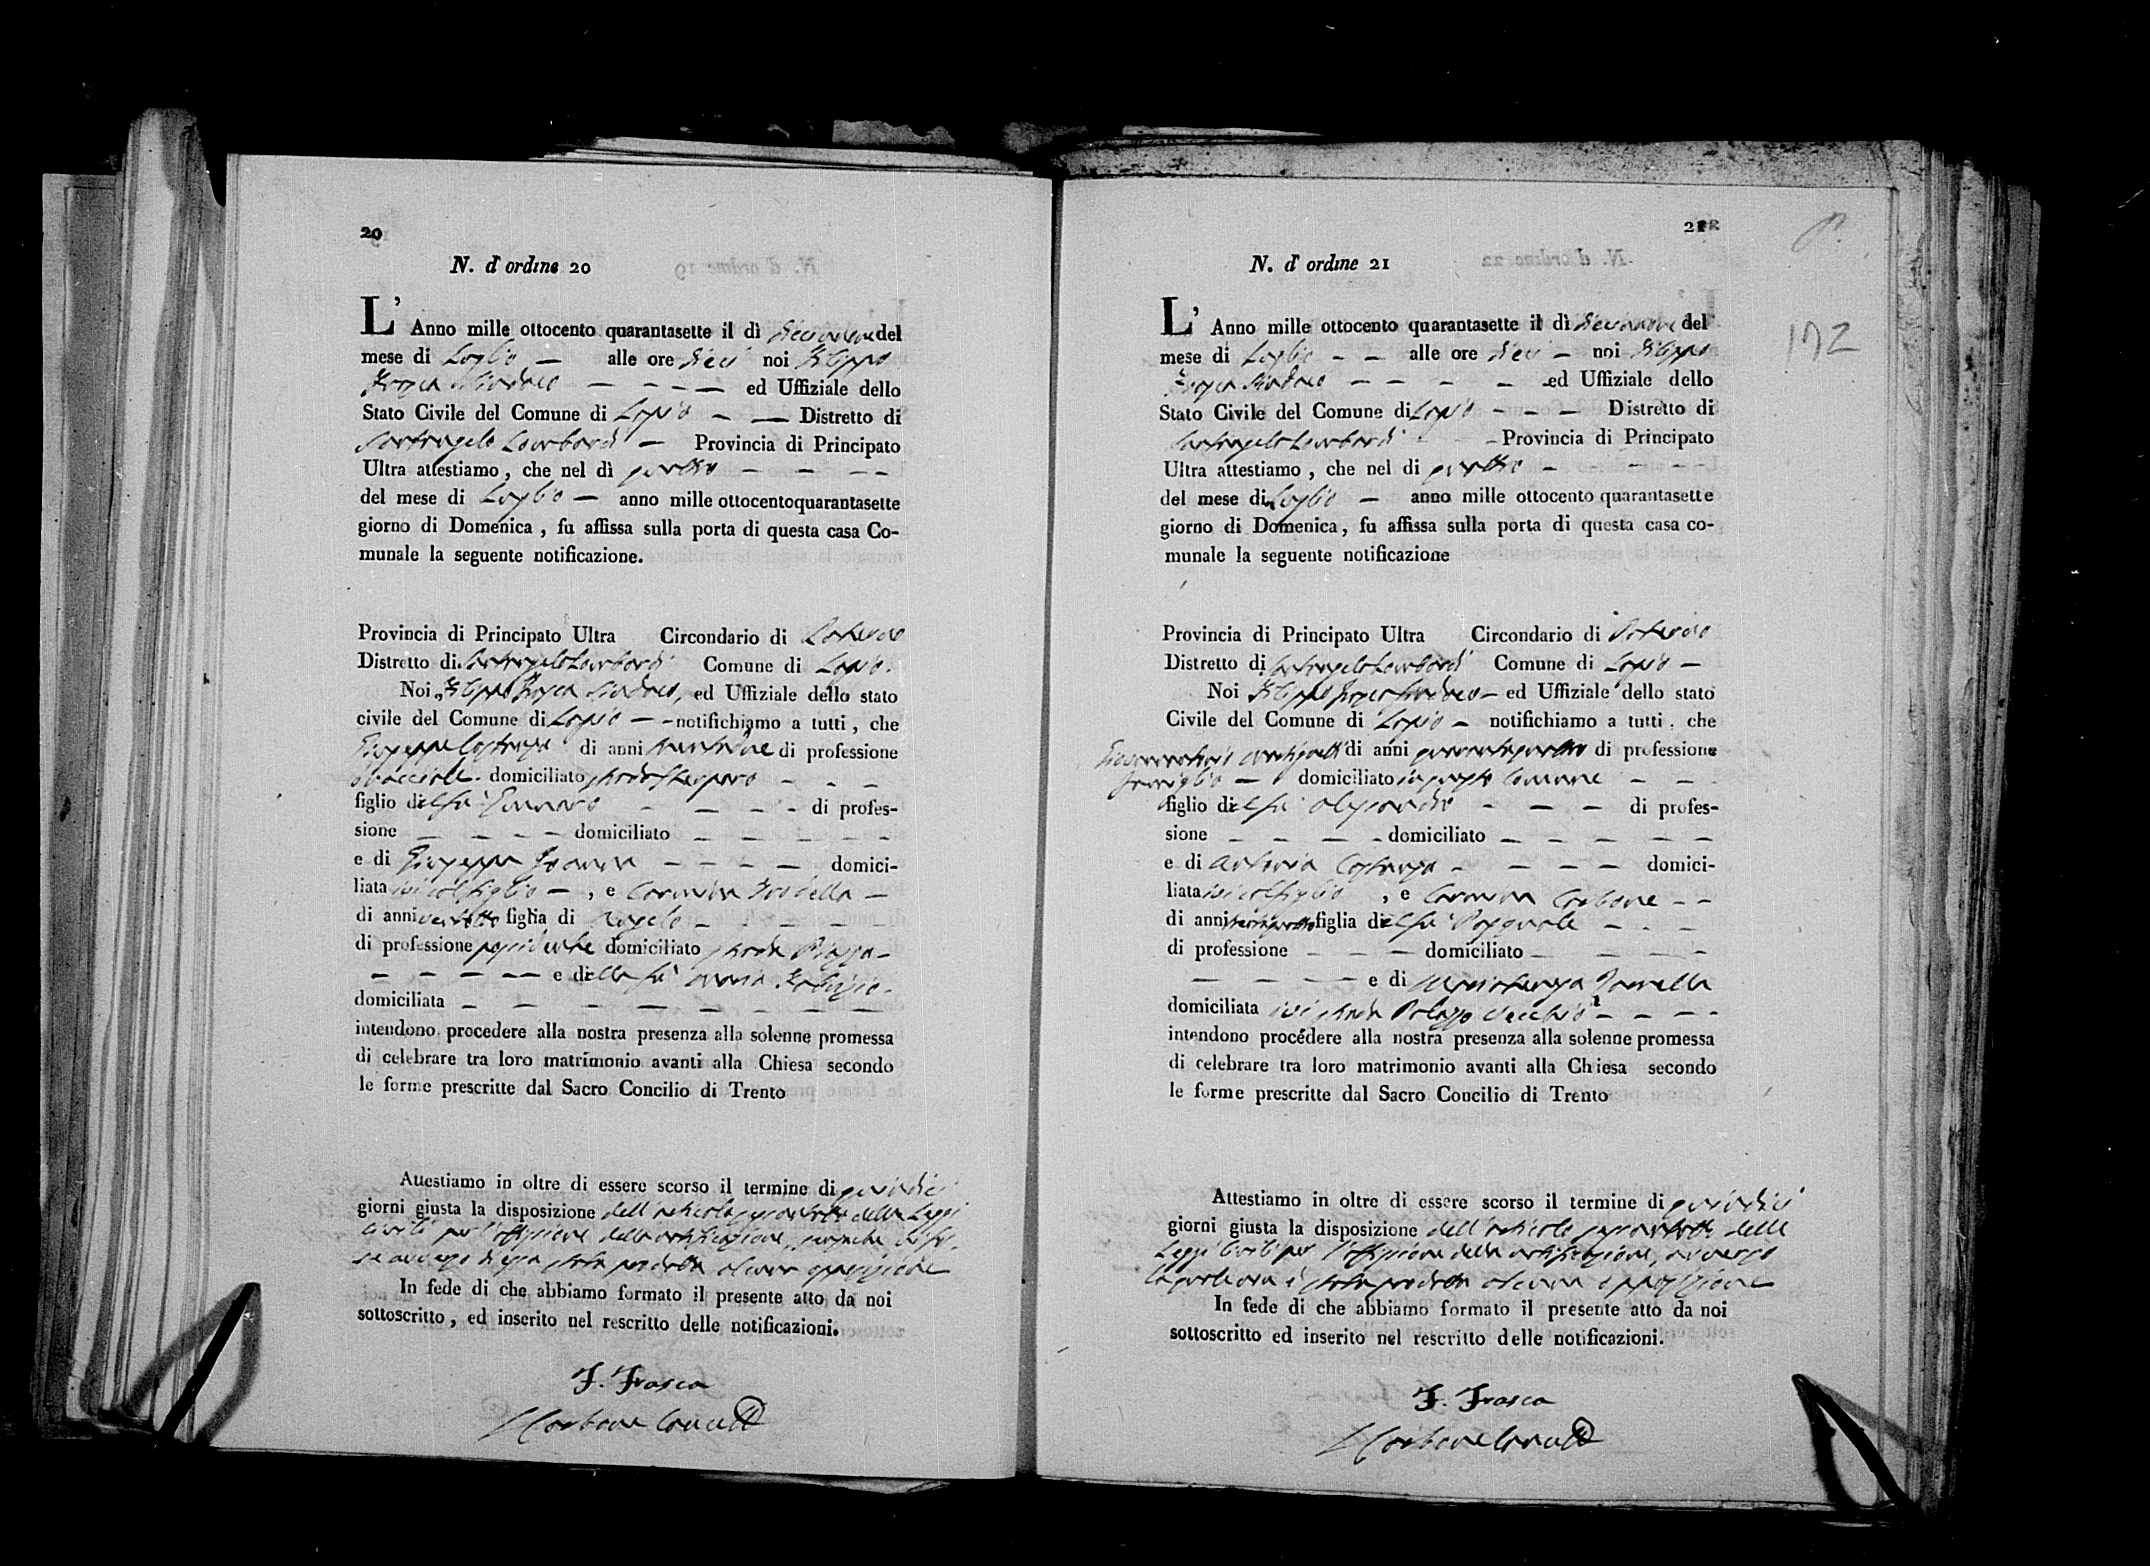 20
N. d' ordine 20
L' Anno mille ottocento quarantasette il dì diecinove del
mese di Luglio — alle ore dieci noi Filippo
Frasca Sindaco — — — — ed Uffiziale dello
Stato Civile del Comune di Lapio — — Distretto di
Santangelo Lombardi — Provincia di Principato
Ultra attestiamo, che nel dì quattro — — — —
del mese di Luglio — anno mille ottocentoquarantasette
giorno di Domenica, fu affissa sulla porta di questa casa Co-
munale la seguente notificazione.
Provincia di Principato Ultra Circondario di Paterno
Distretto di Santangelo Lombardi Comune di Lapio.
Noi Filippo Frasca Sindaco, ed Uffiziale dello stato
civile del Comune di Lapio — - notifichiamo a tutti, che
Giuseppe Costanza di anni di professione
bracciale. domiciliato strada — — —
figlio del fu Gennaro — — — - di profes-
sione — — — — domiciliato — — — — —
e di Giuseppa — — — — domici-
liata ivi col figlio —, e Carmina —
di anni ventotto figlia di Angelo — — — — —
di professione possidente domiciliato strada Piazza —
— — — — — e della fu
domiciliata — — — — — — — —
intendono procedere alla nostra presenza alla solenne promessa
di celebrare tra loro matrimonio avanti alla Chiesa secondo
le forme prescritte dal Sacro Concilio di Trento
Attestiamo in oltre di essere scorso il termine di quindici
giorni giusta la disposizione dell'articolo sessantotto delle Leggi
Civili per l'affissione della notificazione,
alcuna opposizione
In fede di che abbiamo formato il presente atto da noi
sottoscritto, ed inserito nel rescritto delle notificazioni.
F. Frasca
Carbone
21
N. d' ordine 21
172
L' Anno mille ottocento quarantasette il dì diecinove del
mese di Luglio — — alle ore dieci — noi Filippo
Frasca Sindaco — — — — ed Uffiziale dello
Stato Civile del Comune di Lapio — — — Distretto di
Santangelo Lombardi — Provincia di Principato
Ultra attestiamo, che nel di quattro — — — —
del mese di Luglio — anno mille ottocento quarantasette
giorno di Domenica, fu affissa sulla porta di questa casa co-
munale la seguente notificazione
Provincia di Principato Ultra Circondario di Paterno
Distretto di Santangelo Lombardi Comune di Lapio —
Noi Filippo Frasca Sindaco — ed Uffiziale dello stato
Civile del Comune di Lapio — notifichiamo a tutti, che
di anni quarantaquattro di professione
domiciliato in questo Comune — —
figlio del fu Alessandro — — — di profes-
sione — — — - domiciliato — — — — —
e di Antonia Costanza — — — — domici-
liata ivi col figlio, e Carmina Carbone — —
di anni figlia del fu Pasquale — — —
di professione — — — domiciliato — — — —
— — — — e di
domiciliata ivi strada Palazzo Vecchio — — — —
intendono procedere alla nostra presenza alla solenne promessa
di celebrare tra loro matrimonio avanti alla Chiesa secondo
le forme prescritte dal Sacro Concilio di Trento
Attestiamo in oltre di essere scorso il termine di quindici
giorni giusta la disposizione dell'articolo sessantotto delle
Leggi Civili per l'affissione della notificazione, avverso
la quale non è stata prodotta alcuna opposizione
In fede di che abbiamo formato il presente atto da noi
sottoscritto ed inserito nel rescritto delle notificazioni.
F. Frasca
Carbone